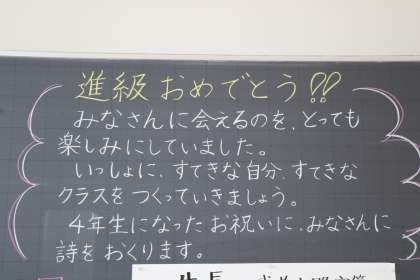 進級おめでとう!!
みなさんに会えるのを、とっても
楽しみにしていました。
いっしょに、すてきな自分、すてきな
クラスをつくっていきましょう。
4年生になったお祝いに、みなさんに
詩をおくります。